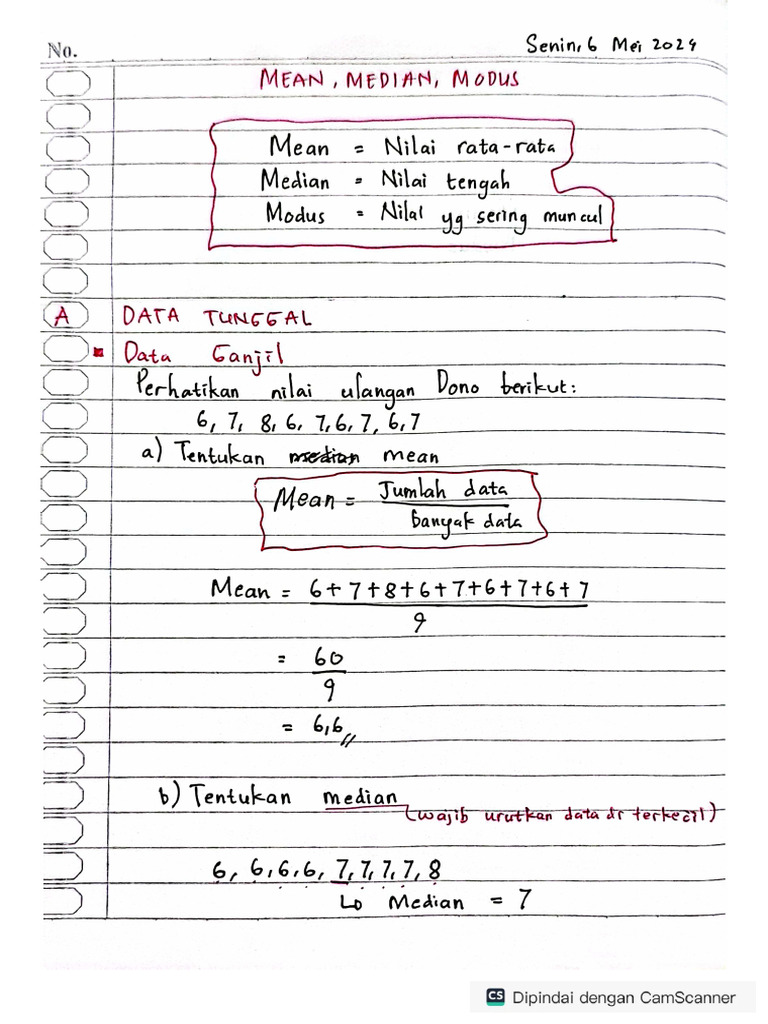 No.
Senin, 6 Mei 2024
MEAN, MEDIAN, MODUS
Mean = Nilai rata-rata
Median = Nilai tengah
Modus = Nilai yg sering muncul
A DATA TUNGGAL
Data Ganjil
Perhatikan nilai ulangan Dono berikut:
6, 7, 8, 6, 7, 6, 7, 6, 7
a) Tentukan median mean
Mean = Jumlah data
banyak data
Mean = 6+7+8+6+7+6+7+6+7
9
= 60
9
= 6,6//
b) Tentukan median
(wajib urutkan data dr terkecil)
6, 6, 6, 6, 7, 7, 7, 7, 8
↳ Median = 7
CS Dipindai dengan CamScanner